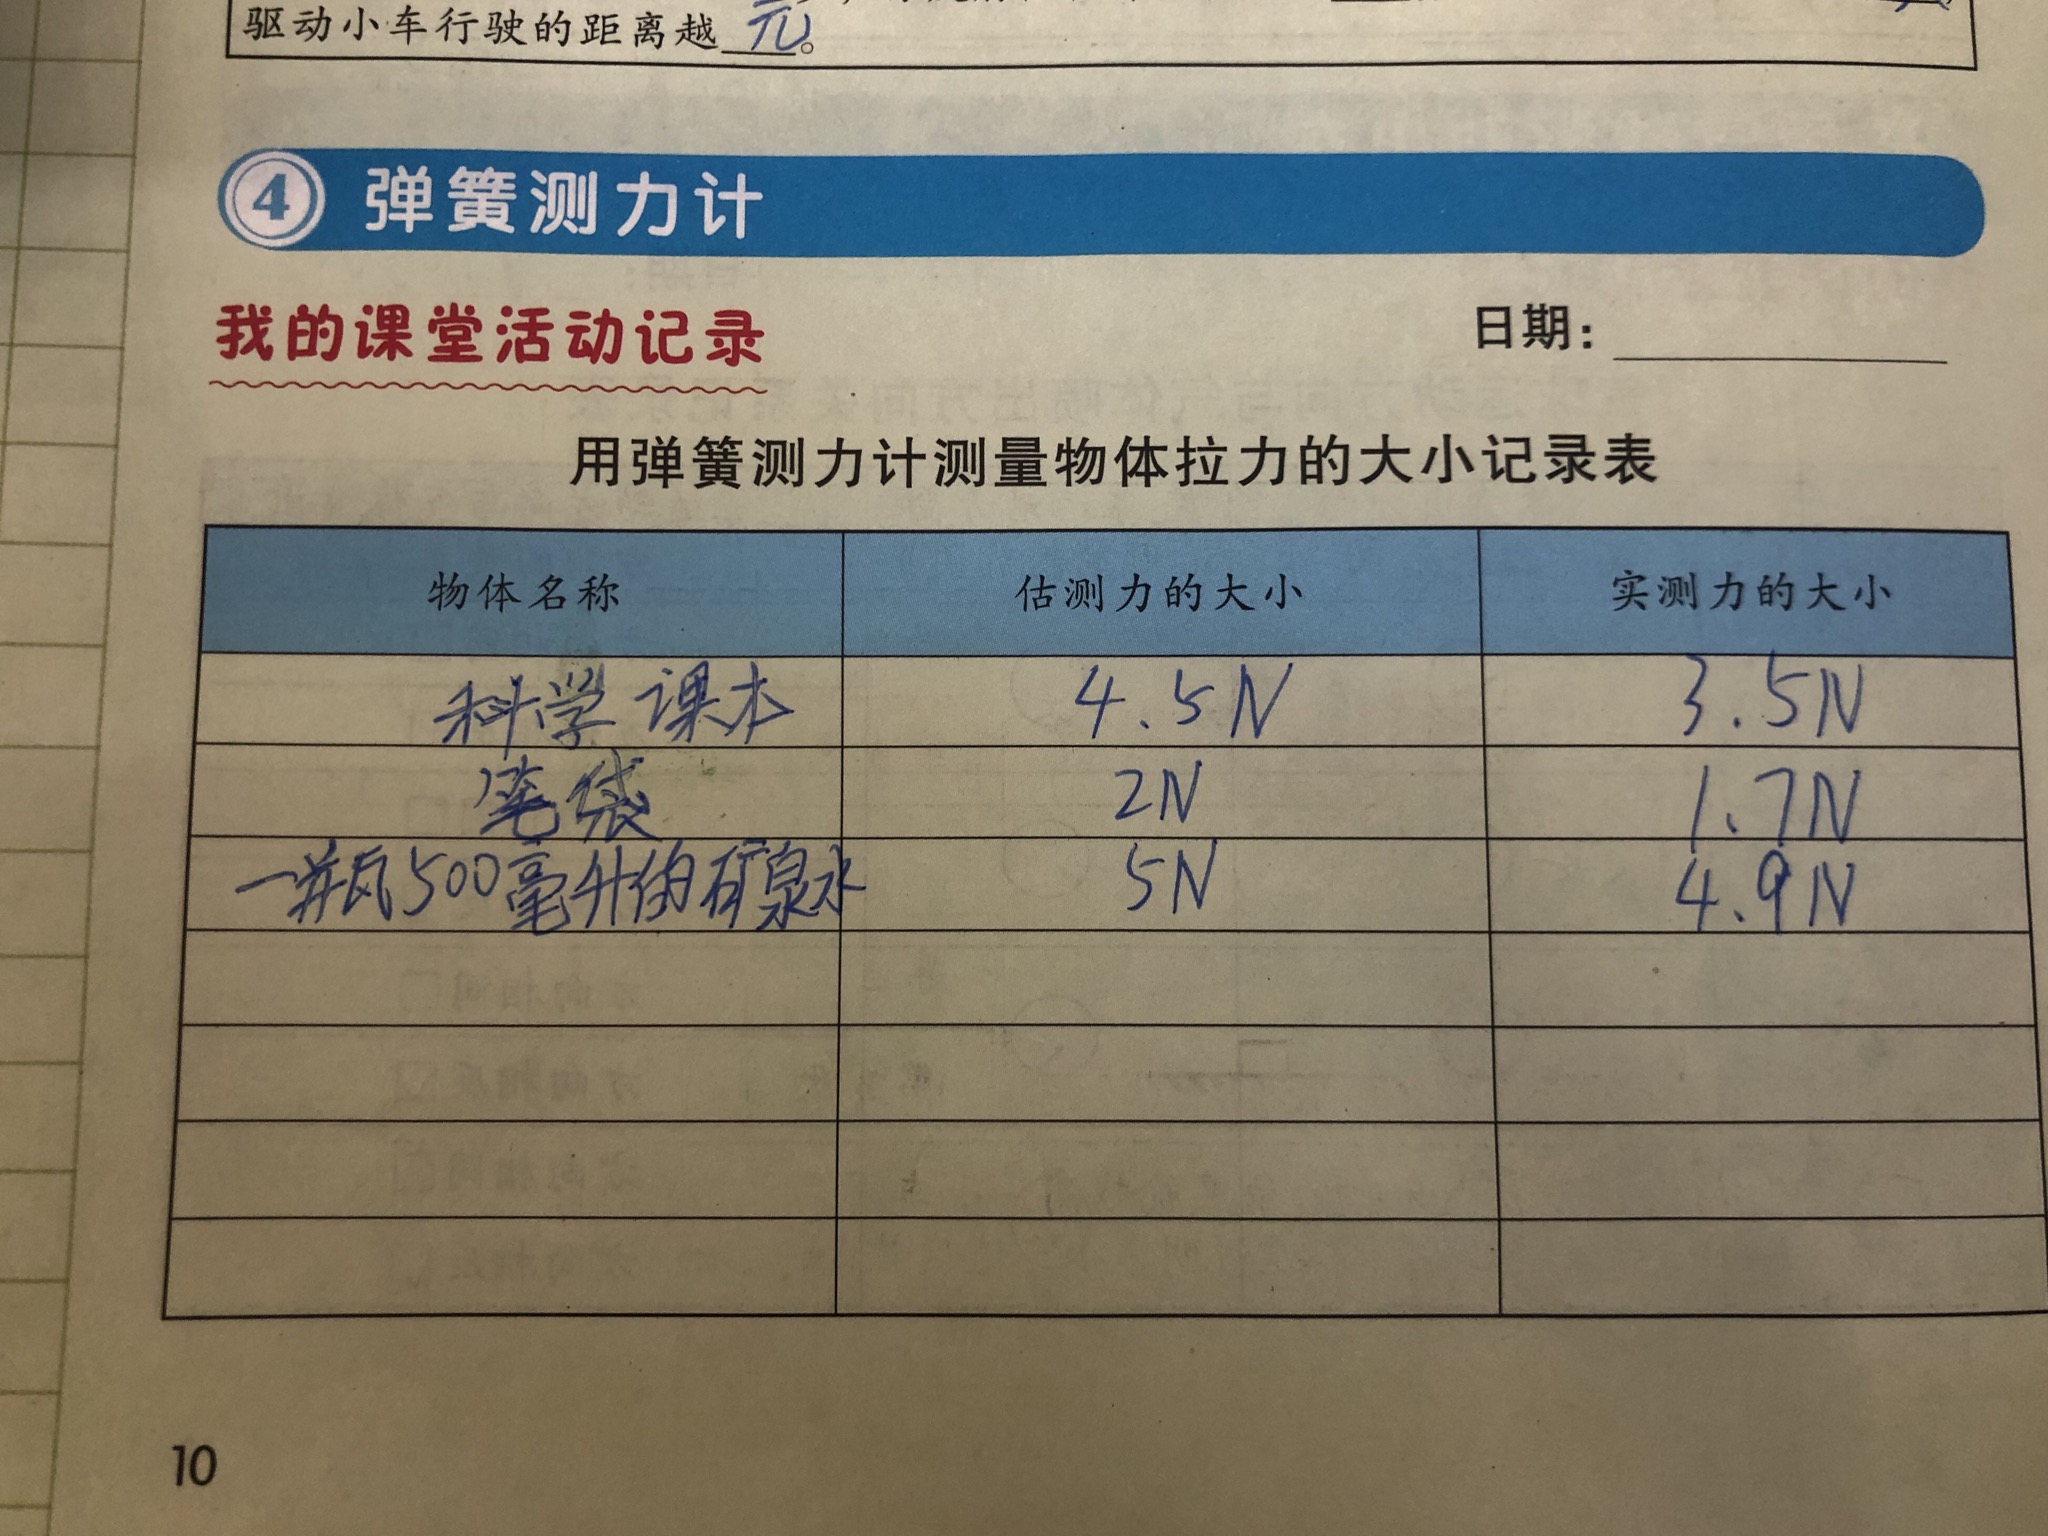 驱动小车行驶的距离越元。
4 弹簧测力计
我的课堂活动记录
日期：
用弹簧测力计测量物体拉力的大小记录表
物体名称 估测力的大小 实测力的大小
科学课本 4.5N 3.5N
笔袋 2N 1.7N
一瓶500毫升的矿泉水 5N 4.9N
10